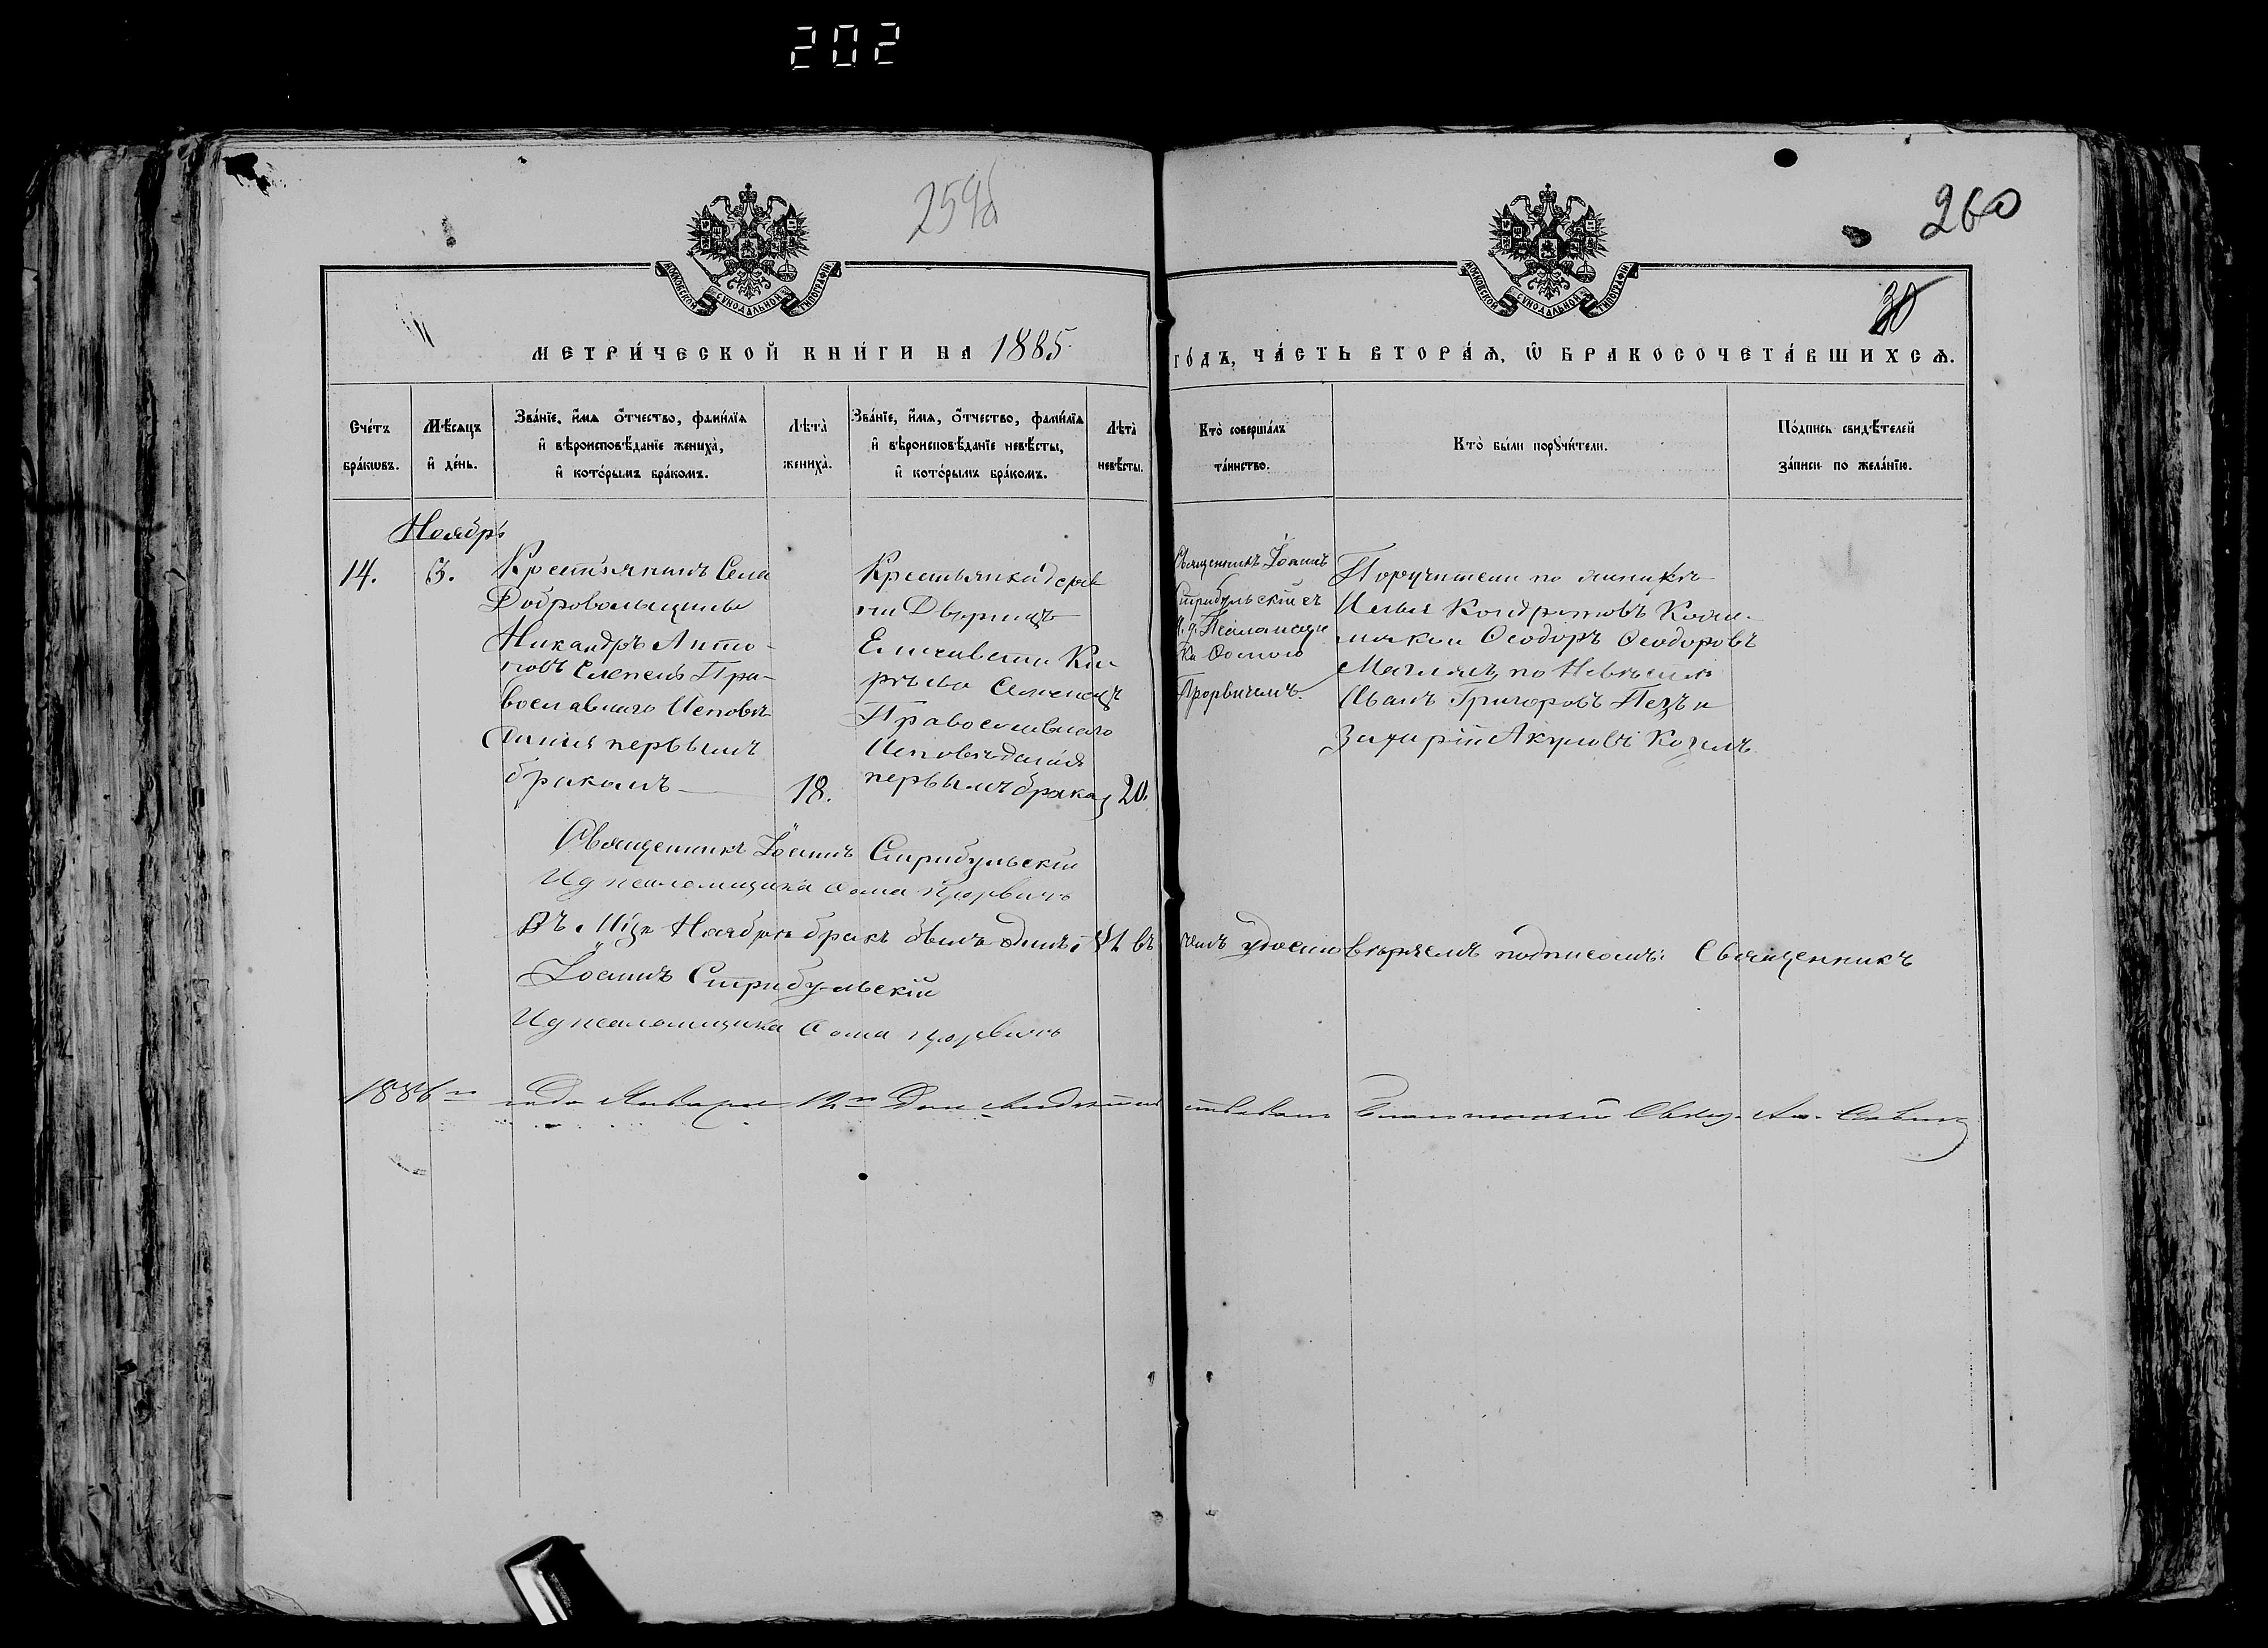 202
259б
260
30
МОСКОВСКОЙ СѴНОДАЛЬНОЙ ТИПОГРАФІИ
МОСКОВСКОЙ СѴНОДАЛЬНОЙ ТИПОГРАФІИ
МЕТРИ́ЧЕСКОЙ КНИ́ГИ НА 1885
ГО́ДЪ, ЧА́СТЬ ВТОРА́Ѧ, Ѿ БРАКОСОЧЕТА́ВШИХСѦ.
Сче́тъ бра́кѡвъ.
Мѣ́сѧцъ и҆ де́нь.
Зва́нїе, и҆́мѧ ѻ҆́тчество, фами́лїѧ и҆ вѣроисповѣ́данїе жениха̀, и҆ кото́рымъ бра́комъ.
Лѣ́та̀ жениха̀.
Зва́нїе, и҆́мѧ, ѻ҆́тчество, фами́лїѧ и҆ вѣроисповѣ́данїе невѣ́сты, и҆ кото́рымъ бра́комъ.
Лѣ́та̀ невѣ́сты.
Кто̀ соверша́лъ та́инство.
Кто̀ бы́ли порꙋчи́тели.
По́дпись свидѣ́телей за́писи по жела́нїю.
Ноябрь
14.
3.
Крестьянинъ Села
Добровольщины
Никандръ Анто-
новъ Слепень Пра-
вославнаго Исповѣ-
данія первымъ
бракомъ
18.
Крестьянка дерев
ни Дворищъ
Елисавета Ки-
рѣева
Православнаго
Исповѣданія
первымъ брако
20.
Священникъ Іоаннъ
Стрибульскій съ
и. д. Псаломщи
ка Ѳомою
Прорвичемъ.
Поручители по женихѣ
Илья Кондратовъ
Ѳеодоръ Ѳеодоровъ
по Невѣстѣ
Иванъ Григоровъ и
Захарій Акуловъ Козелъ.
Священникъ Іоаннъ Стрибульскій
И д псаломщика Ѳома Прорвичъ
Въ М-цѣ Ноябрѣ бракъ былъ одинъ, въ чемъ удостовѣряемъ подписомъ: Священникъ
Іоаннъ Стрибульскій
И д псаломщика Ѳома Прорвичъ
1886 го года Января 12 го Дня Благочинный Свящ.